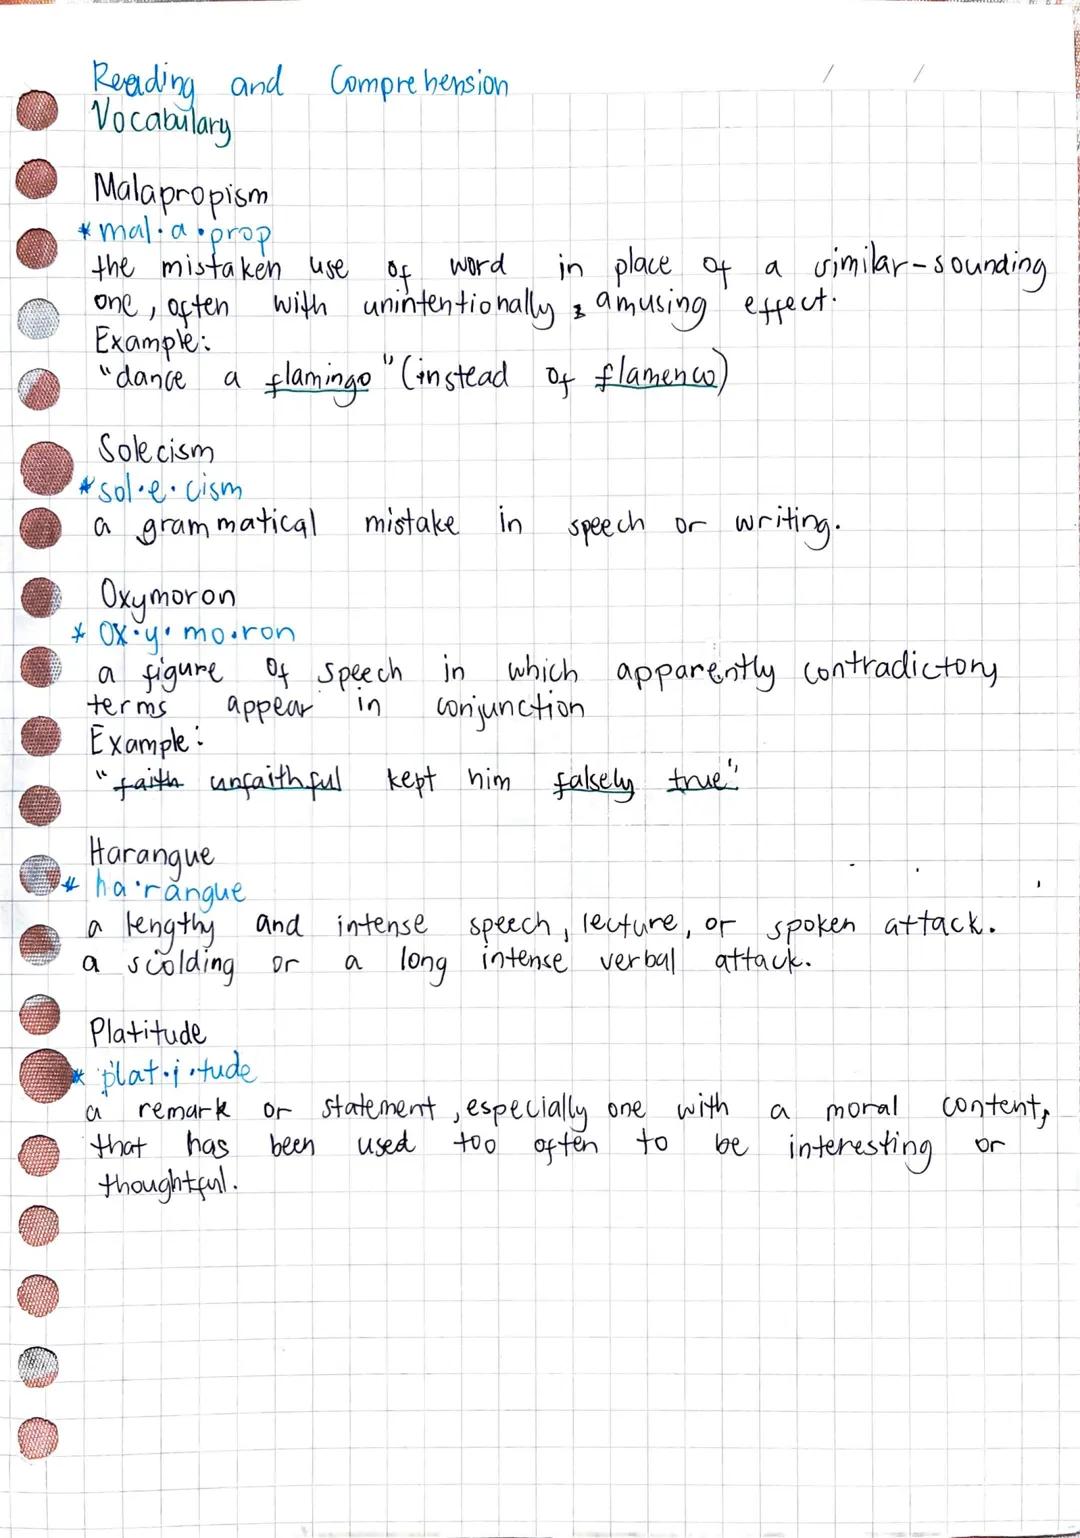 Reading and Comprehension
Vocabulary
Malapropism
* mal·a·prop
the mistaken use of word in place of a similar-sounding
one, often with unintentionally amusing effect.
Example:
"dance a flamingo" (instead of flamenco)
Solecism
* sol·e·cism
a grammatical mistake in speech or writing.
Oxymoron
* ox·y·mo·ron
a figure of speech in which apparently contradictory
terms appear in conjunction
Example:
"faith unfaithful kept him falsely true"
Harangue
* ha·rangue
a lengthy and intense speech, lecture, or spoken attack.
a scolding or a long intense verbal attack.
Platitude
* plat·i·tude
a remark or statement, especially one with a moral content,
that has been used too often to be interesting or
thoughtful.